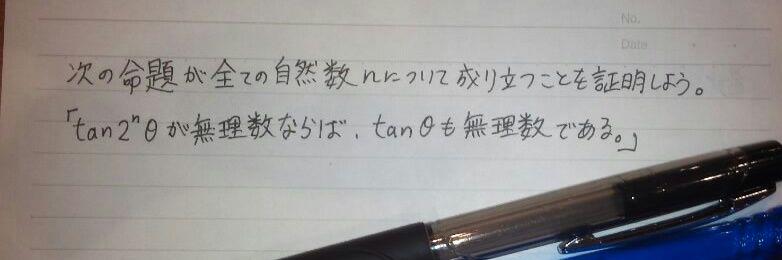 No.
Date
次の命題が全ての自然数nについて成り立つことを証明しよう。
「tan2ⁿθが無理数ならば、tanθも無理数である。」